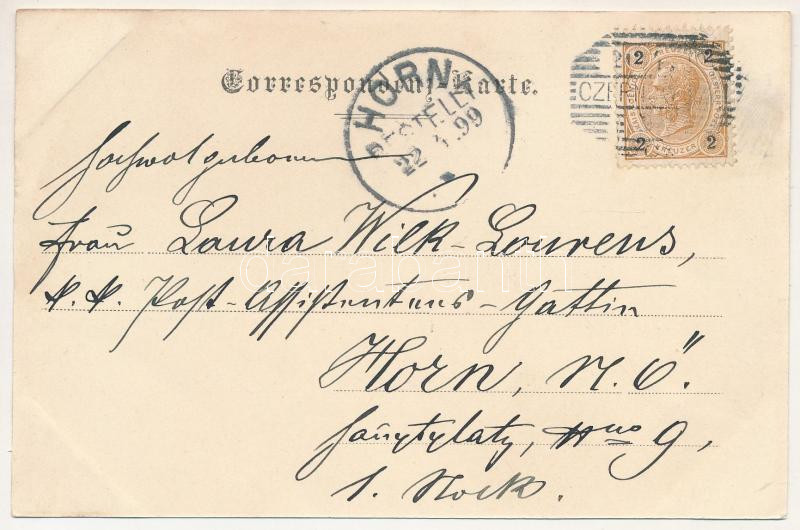 Correspondenz-Karte.
HORN
BESTELLT
22 99
2 2
CZER
2 KREUZER 2
Hochwolgeboren
Frau Laura Wilk-Lourens,
k. k. Post-Assistentens-Gattin
Horn, N. Ö.
Hauptplatz, Nro 9,
1. Stock.
darabanth